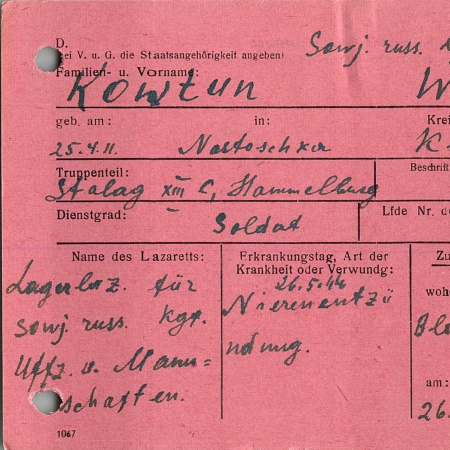 D.
(bei V. u. G. die Staatsangehörigkeit angeben) Sowj. russ.
Familien- u. Vorname:
Kowtun W
geb. am: in: Krei
25.4.11. Nastoschka K
Truppenteil: Beschrift
Stalag XIII C, Hammelburg
Dienstgrad: Soldat Lfde Nr. de
Name des Lazaretts: Erkrankungstag, Art der Krankheit oder Verwundg: Zu
Lagerlaz. für 26.5.44 woh
sowj. russ. kgf. Nierenentzü Blo
Uffz. u. Mann= ndung. am:
schaften. 26.
1067